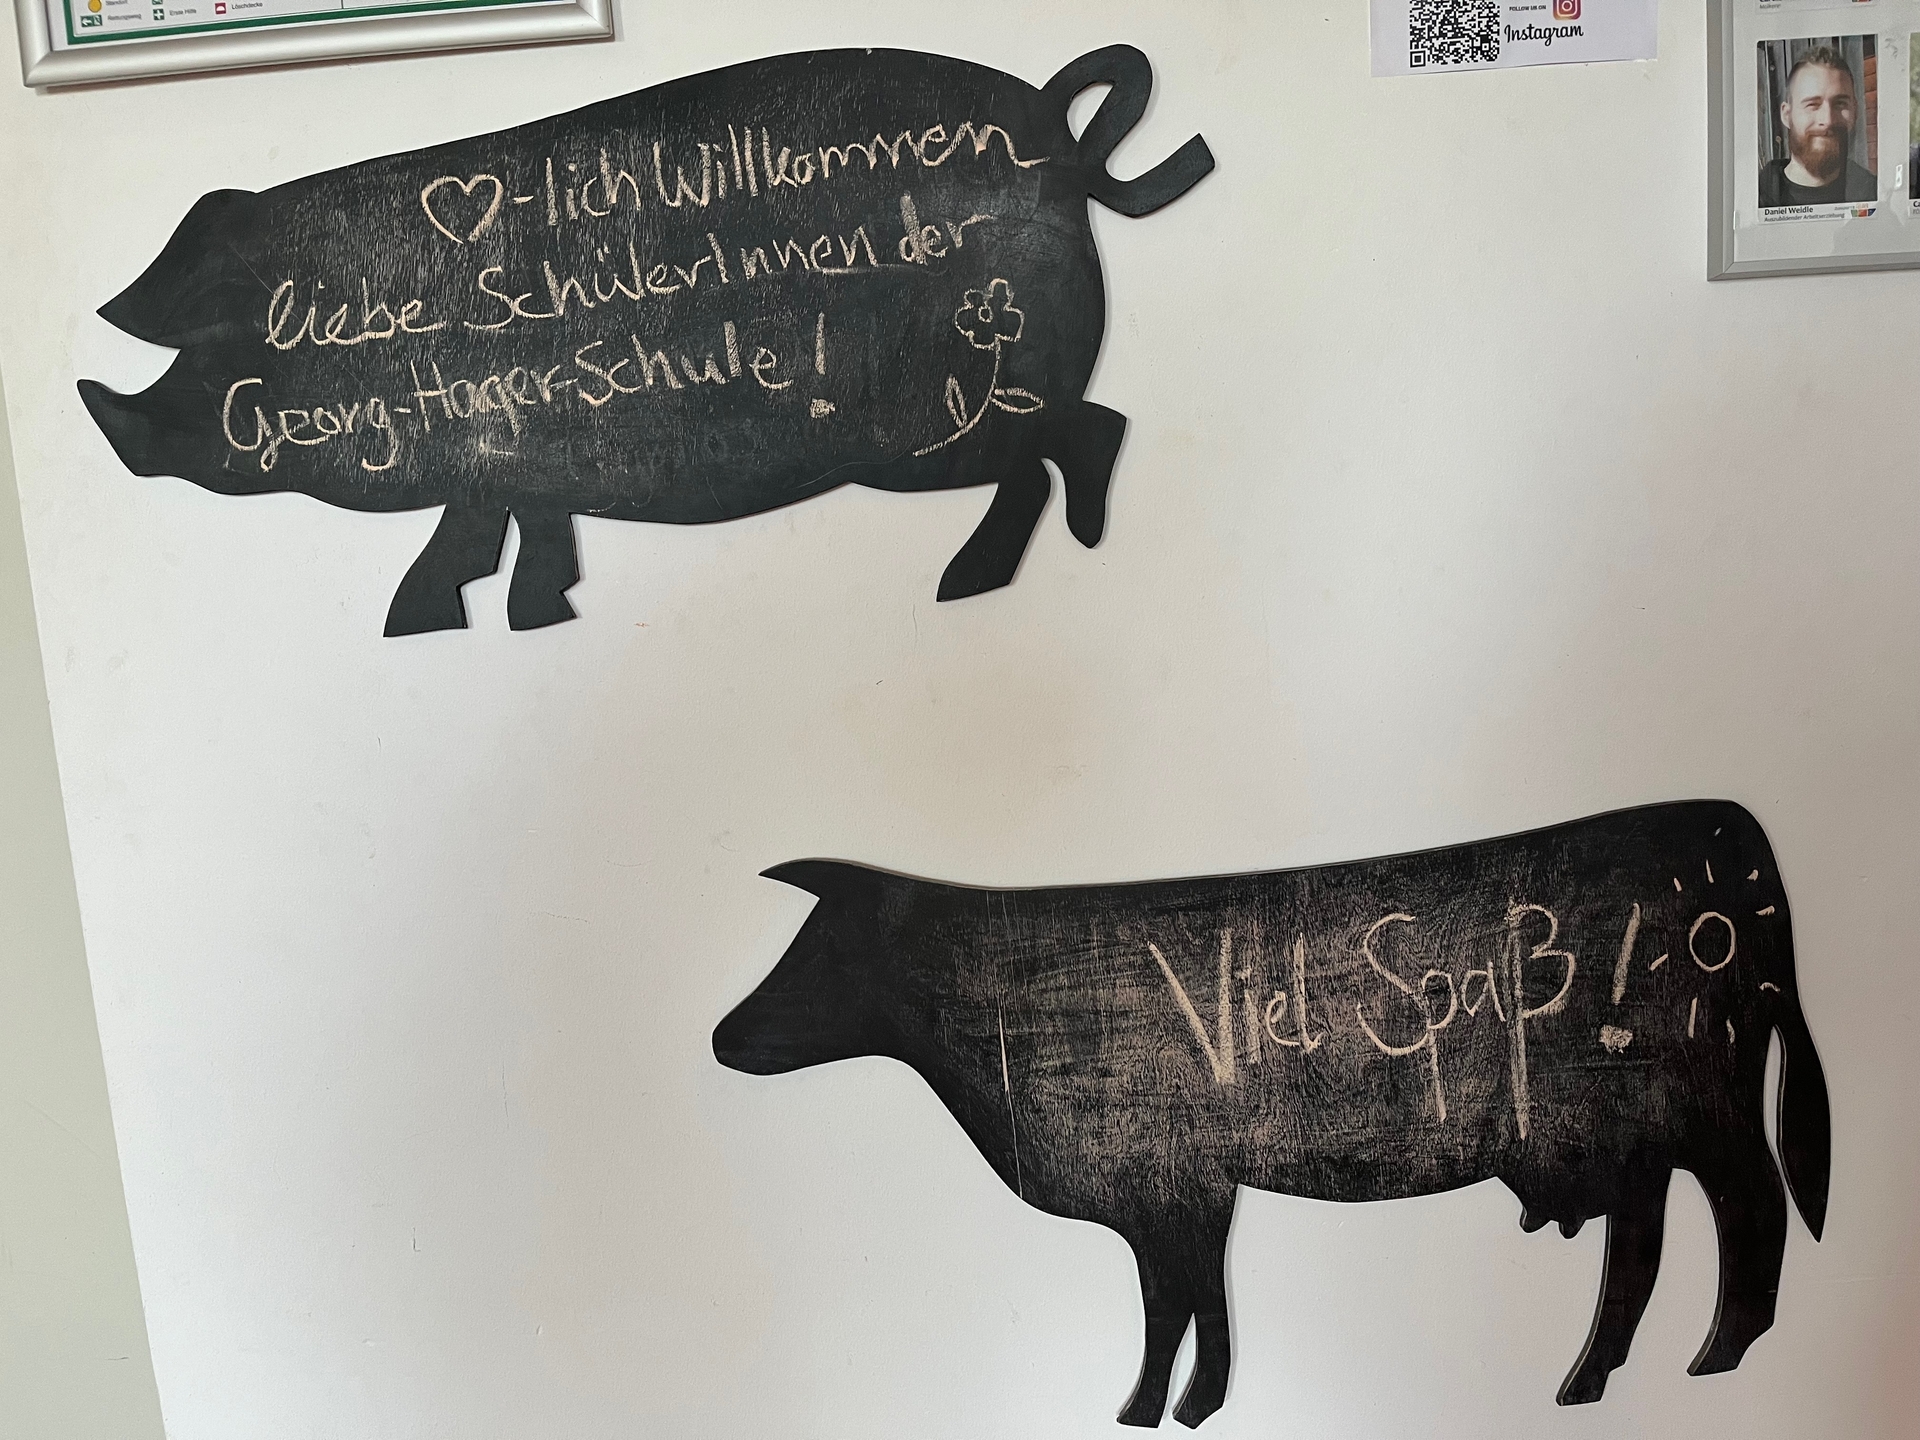 Standort
Rettungsweg
Erste Hilfe
Löschdecke
FOLLOW US ON
Instagram
Daniel Weidle
Auszubildender Arbeitserziehung
♡-lich Willkommen
liebe SchülerInnen der
Georg-Hager-Schule!
Viel Spaß!